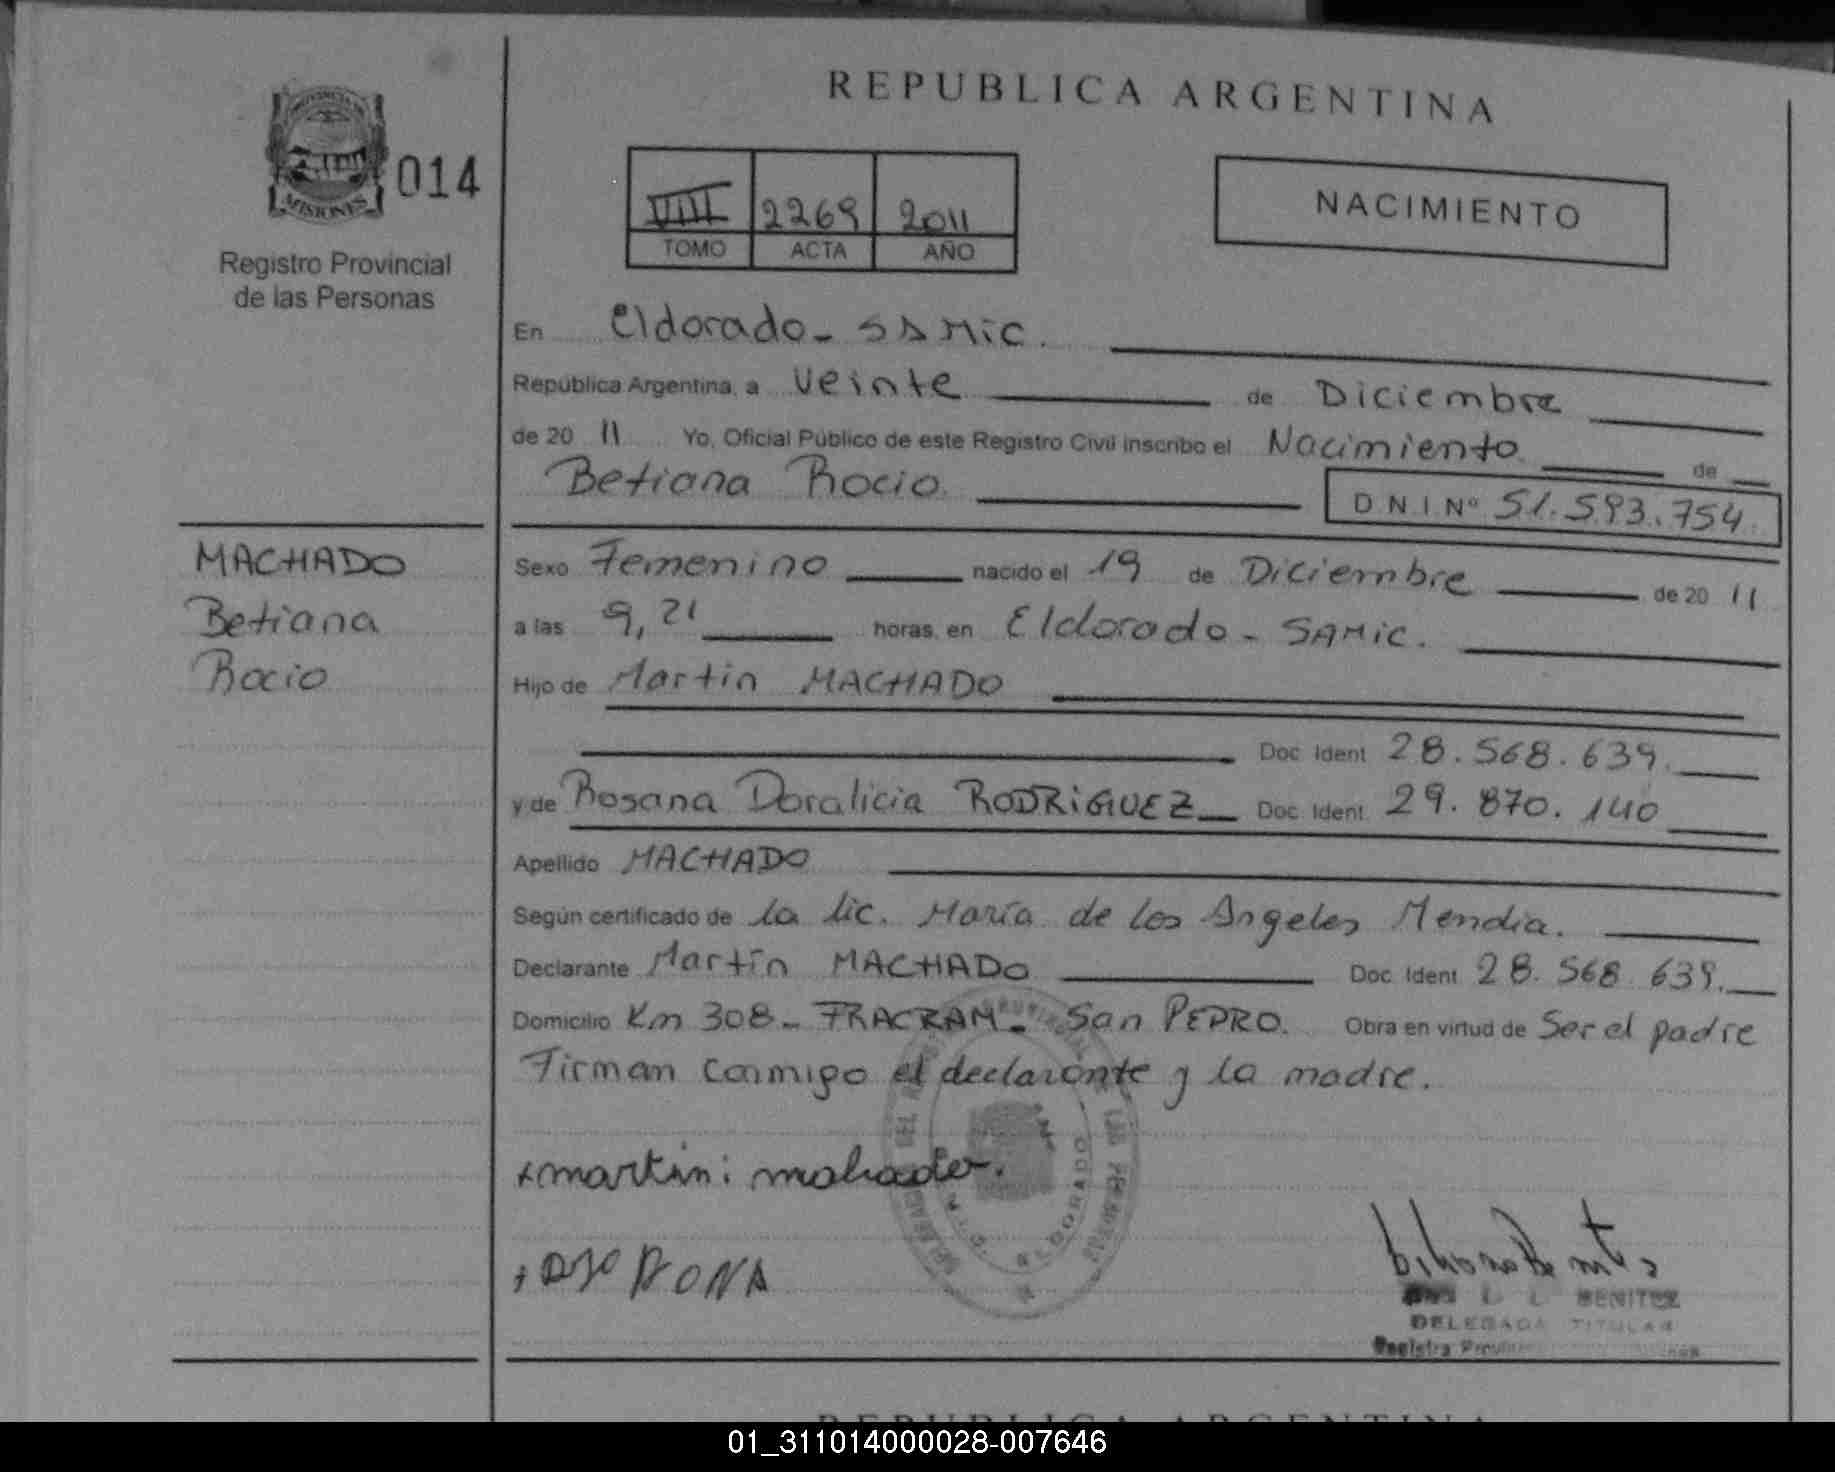 REPUBLICA ARGENTINA
PROVINCIA DE
MISIONES
014
Registro Provincial
de las Personas
VIII 2269 2011
TOMO ACTA AÑO
NACIMIENTO
En Eldorado - SAMic.
República Argentina, a Veinte de Diciembre
de 20 11 Yo, Oficial Público de este Registro Civil inscribo el Nacimiento de
Betiana Rocio
D.N.I. Nº 51.593.754.
MACHADO
Betiana
Rocio
Sexo Femenino nacido el 19 de Diciembre de 20 11
a las 9,21 horas, en Eldorado - SAMic.
Hijo de Martin MACHADO
Doc. Ident. 28.568.639.
y de Rosana Doralicia RODRiGUEZ Doc. Ident. 29.870.140
Apellido MACHADO
Según certificado de la lic. María de los Angeles Mendia.
Declarante Martín MACHADO Doc. Ident. 28.568.639.
Domicilio Km 308 - FRACRAM - San PEDRO. Obra en virtud de Ser el padre
Firman conmigo el declarante y la madre.
martin: mahado.
ELDORADO
BENITEZ
DELEGADA TITULAR
Registro
REPUBLICA ARGENTINA
01_311014000028-007646